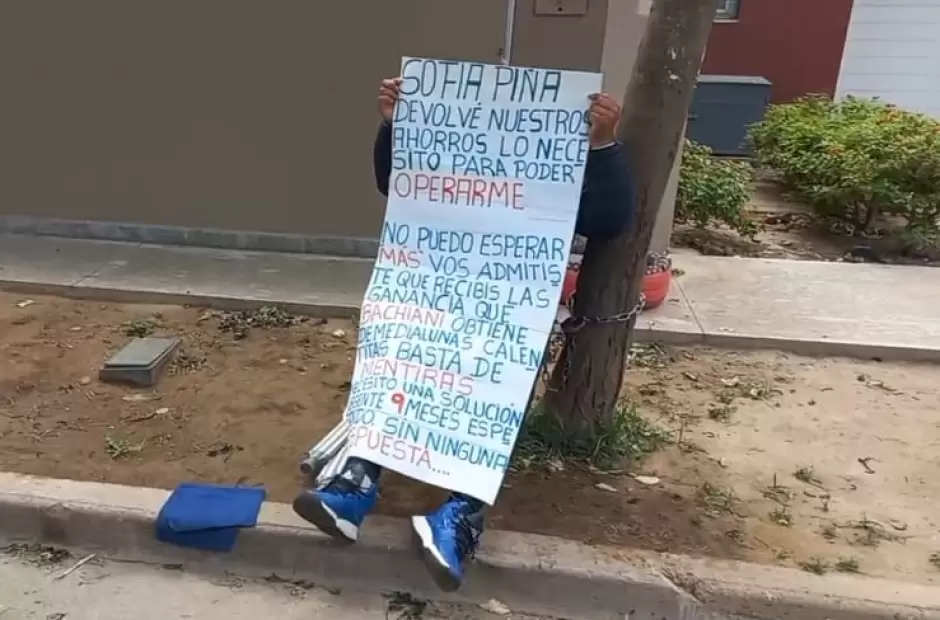 SOFIA PIÑA
DEVOLVÉ NUESTROS
AHORROS LO NECE
SITO PARA PODER
OPERARME
NO PUEDO ESPERAR
MAS VOS ADMITIS
TE QUE RECIBIS LAS
GANANCIA QUE
BACHIANI OBTIENE
DE MEDIALUNAS CALEN
TITAS BASTA DE
MENTIRAS
NECESITO UNA SOLUCIÓN
9 MESES ESPE
SIN NINGUNA
PUESTA....